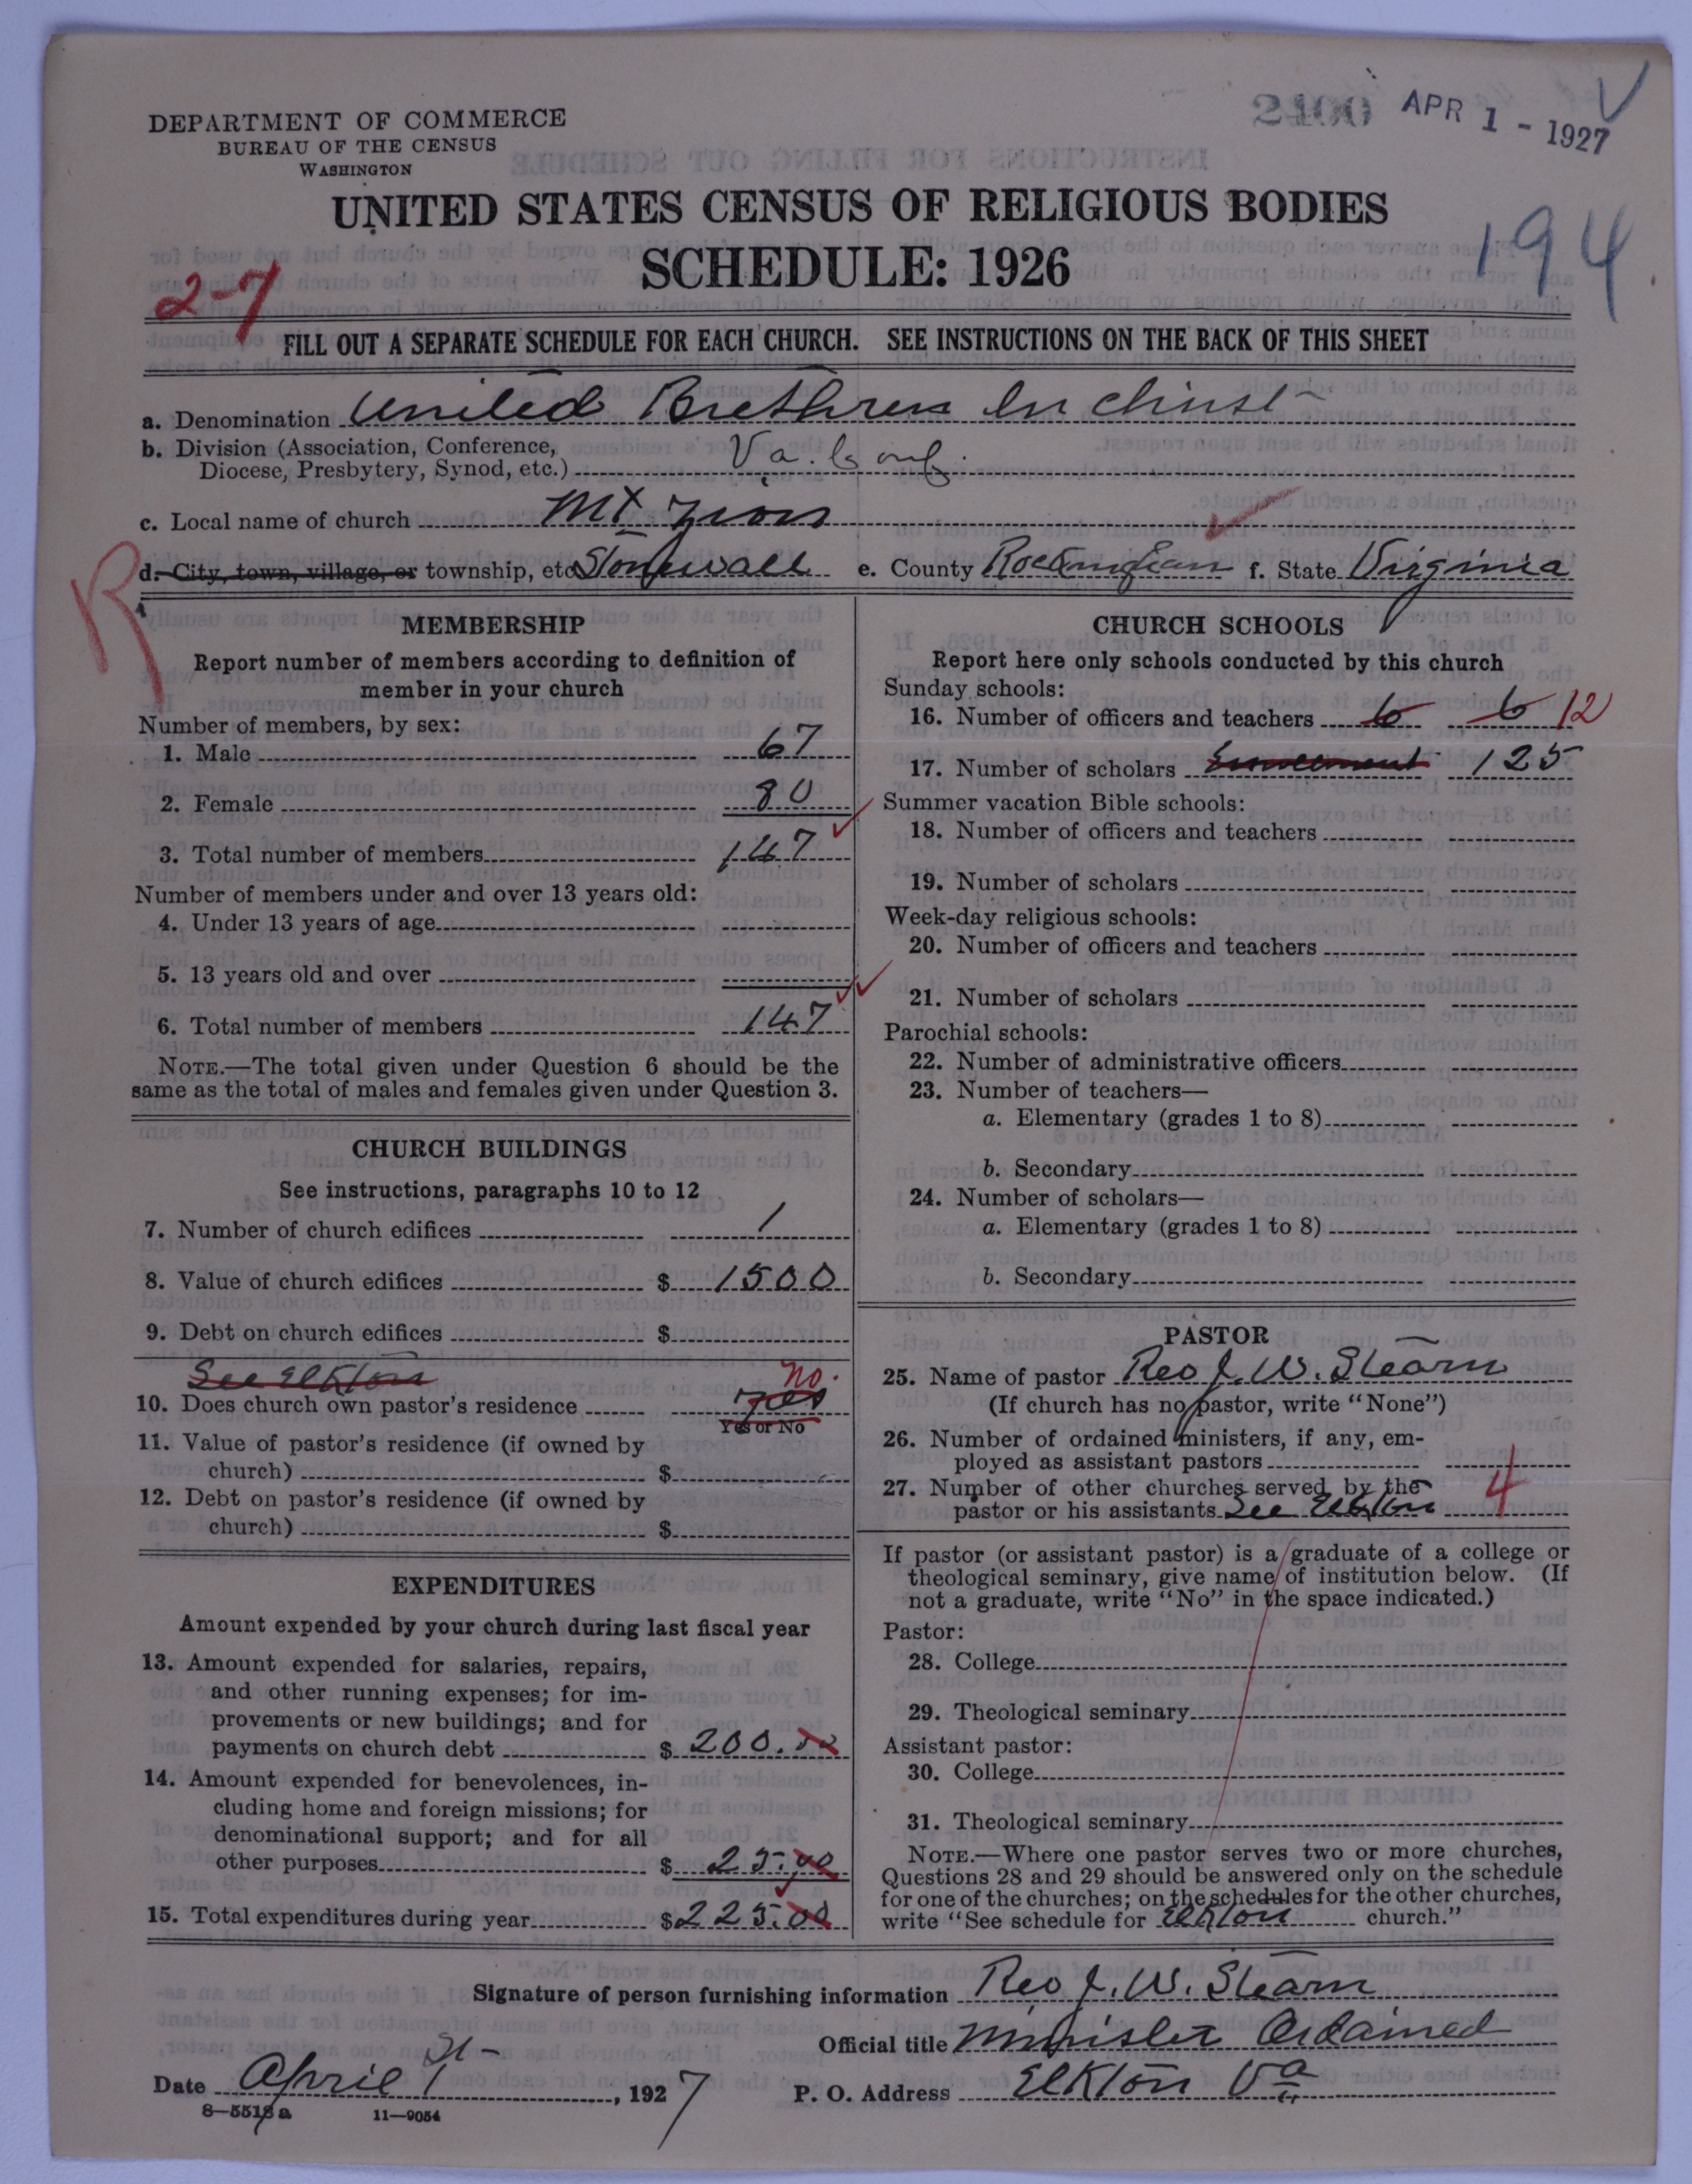 2400 APR 1 - 1927 V
DEPARTMENT OF COMMERCE
BUREAU OF THE CENSUS
WASHINGTON
UNITED STATES CENSUS OF RELIGIOUS BODIES
SCHEDULE: 1926
194
2-7
FILL OUT A SEPARATE SCHEDULE FOR EACH CHURCH. SEE INSTRUCTIONS ON THE BACK OF THIS SHEET
a. Denomination United Brethren In Christ
b. Division (Association, Conference,
Diocese, Presbytery, Synod, etc.) Va. Conf.
c. Local name of church Mt Zion
d. City, town, village, or township, etc Stonewall e. County Rockingham f. State Virginia
R
MEMBERSHIP
Report number of members according to definition of
member in your church
Number of members, by sex:
1. Male 67
2. Female 80
3. Total number of members 147
Number of members under and over 13 years old:
4. Under 13 years of age
5. 13 years old and over
6. Total number of members 147
NOTE.—The total given under Question 6 should be the
same as the total of males and females given under Question 3.
CHURCH BUILDINGS
See instructions, paragraphs 10 to 12
7. Number of church edifices 1
8. Value of church edifices $ 1500
9. Debt on church edifices $
See Elkton no.
10. Does church own pastor's residence yes
Yes or No
11. Value of pastor's residence (if owned by
church) $
12. Debt on pastor's residence (if owned by
church) $
EXPENDITURES
Amount expended by your church during last fiscal year
13. Amount expended for salaries, repairs,
and other running expenses; for im-
provements or new buildings; and for
payments on church debt $ 200.00
14. Amount expended for benevolences, in-
cluding home and foreign missions; for
denominational support; and for all
other purposes $ 25.00
15. Total expenditures during year $225.00
CHURCH SCHOOLS
Report here only schools conducted by this church
Sunday schools:
16. Number of officers and teachers 6 6 12
17. Number of scholars Enrollment 125
Summer vacation Bible schools:
18. Number of officers and teachers
19. Number of scholars
Week-day religious schools:
20. Number of officers and teachers
21. Number of scholars
Parochial schools:
22. Number of administrative officers
23. Number of teachers—
a. Elementary (grades 1 to 8)
b. Secondary
24. Number of scholars—
a. Elementary (grades 1 to 8)
b. Secondary
PASTOR
25. Name of pastor Rev J. W. Stearn
(If church has no pastor, write "None")
26. Number of ordained ministers, if any, em-
ployed as assistant pastors
27. Number of other churches served by the
pastor or his assistants See Elkton 4
If pastor (or assistant pastor) is a graduate of a college or
theological seminary, give name of institution below. (If
not a graduate, write "No" in the space indicated.)
Pastor:
28. College
29. Theological seminary
Assistant pastor:
30. College
31. Theological seminary
NOTE.—Where one pastor serves two or more churches,
Questions 28 and 29 should be answered only on the schedule
for one of the churches; on the schedules for the other churches,
write "See schedule for Elkton church."
Signature of person furnishing information Rev J. W. Stearn
Official title Minister Ordained
Date April 1st, 1927 P. O. Address Elkton Va
8—5518 a 11—9054